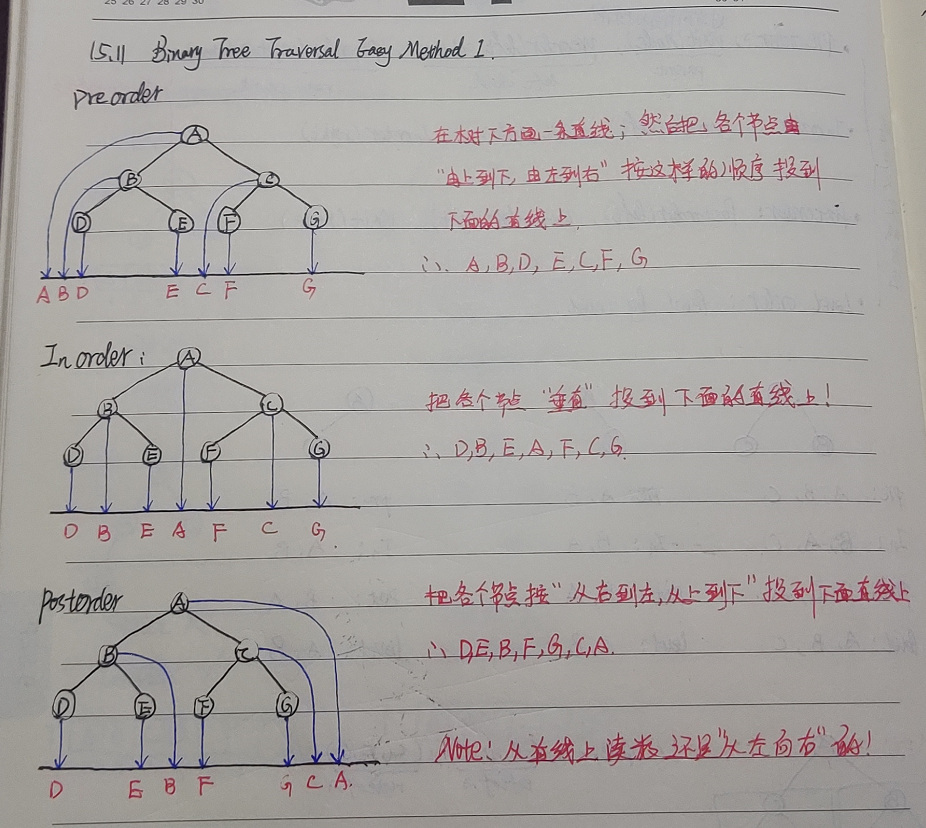 25 26 27 28 29 30
15.11 Binary Tree Traversal Easy Method 1.
Preorder
A
B C
D E F G
A B D E C F G
在树下方画一条直线，然后把各个节点由
"由上到下，由左到右" 按这样的顺序投到
下面的直线上.
∴ A,B,D,E,C,F,G
Inorder:
A
B C
D E F G
D B E A F C G
把各个节点 "垂直" 投到下面的直线上!
∴ D,B,E,A,F,C,G.
Postorder
A
B C
D E F G
D E B F G C A.
把各个节点按"从右到左,从上到下"投到下面直线上
∴ D,E,B,F,G,C,A.
Note: 从直线上读数 还是"从左向右"的!